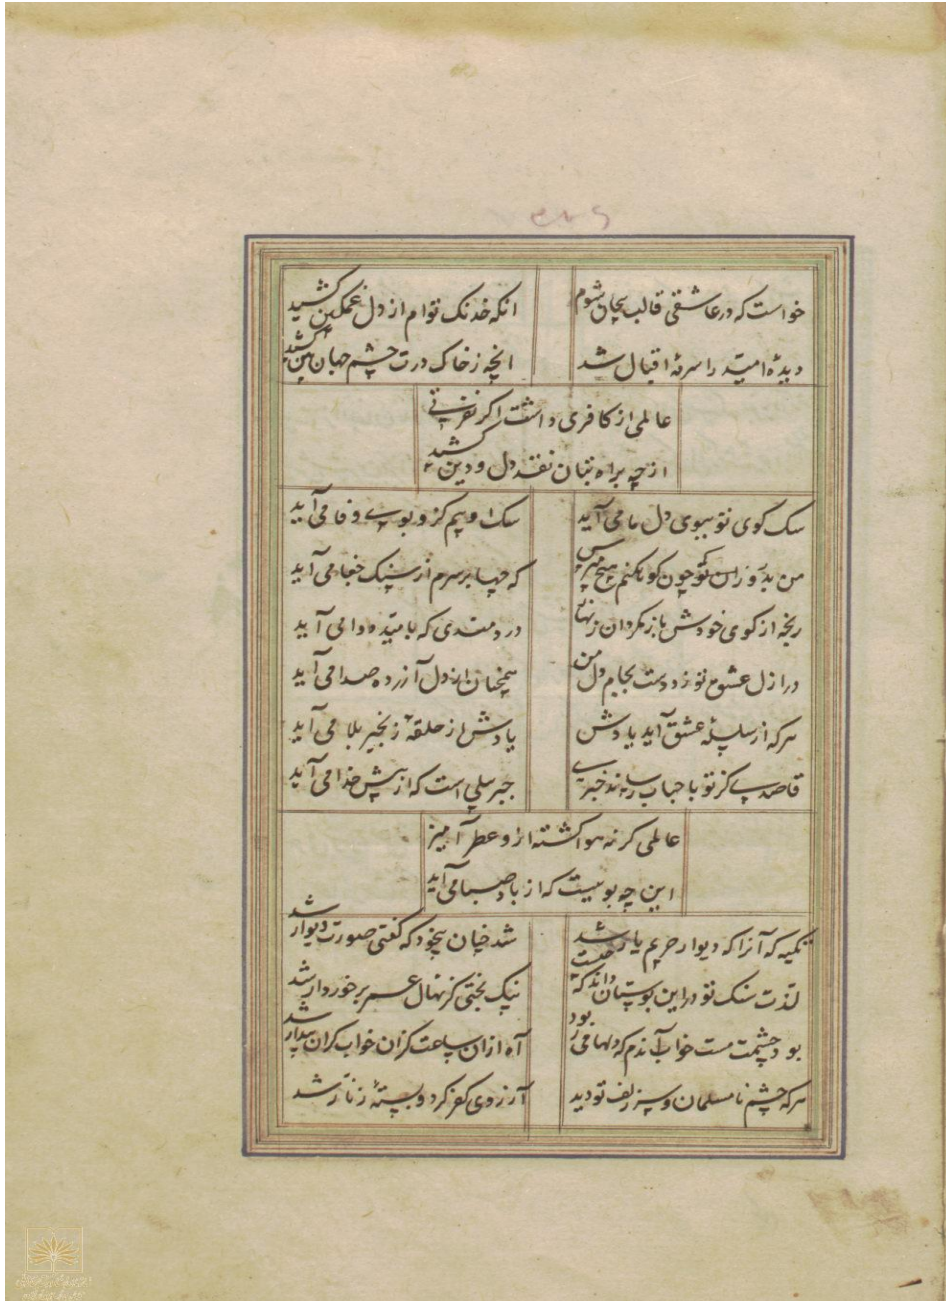 خواست که در عاشقی قالب بیجان شوم
انکه خدنک توام از دل غمکین کشید
دیدهٔ امید را سرمهٔ اقبال شد
انچه ز خاک درت چشم جهان بین کشید
عالمی از کافری داشت اکر نفرتی
از چه براه بتان نقد دل و دین کشید
سک کوی تو ببوی دل ما می آید
سک اویم کزو بوی وفا می آید
من بدوران تو چون کوه کنم هیچ مپرس
که چها بر سرم از سنک جفا می آید
رنجه از کوی خودش باز مکردان زنهار
دردمندی که بامید دوا می آید
در ازل عشق تو زد دست بجام دل من
همچنان از دل آزرده صدا می آید
هر که از سلسلهٔ عشق آید یادش
یادش از حلقهٔ زنجیر بلا می آید
قاصدی کز تو باحباب رساند خبری
جبرییلی است که از پیش خدا می آید
عالمی کر نه هوا کشته ازو عطر آمیز
این چه بوییست که از باد صبا می آید
تکیه که آنرا که دیوار حریم یار شد
شد چنان بیخود که کفتی صورت دیوار شد
لذت سنک تو در این بوستان داند که چیست
نیک بختی کز نهال عمر برخوردار شد
بود چشمت مست خواب آندم که دلها می ربود
آه ازان ساعت کزان خواب کران بیدار شد
هر که چشم نامسلمان و سر زلف تو دید
آرزوی کفر کرد و بستهٔ زنار شد